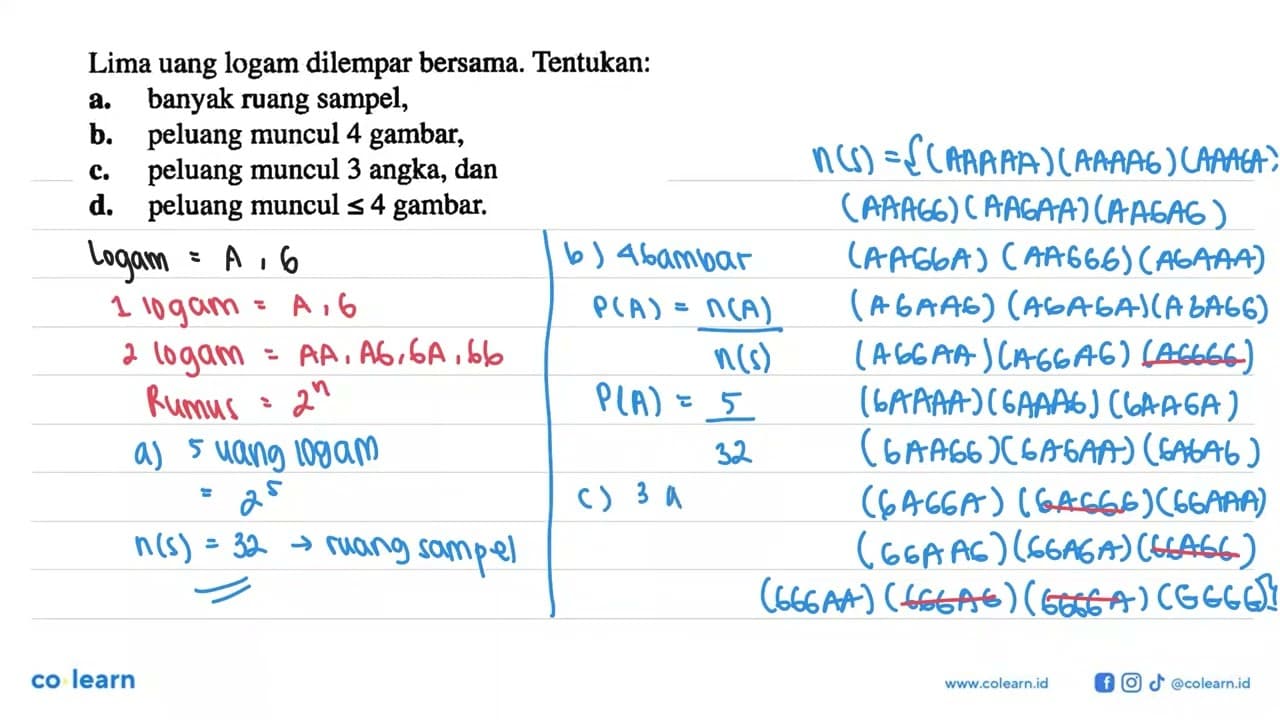 Lima uang logam dilempar bersama. Tentukan:
a. banyak ruang sampel,
b. peluang muncul 4 gambar,
c. peluang muncul 3 angka, dan
d. peluang muncul ≤ 4 gambar.
Logam = A, G
1 logam = A, G
2 logam = AA, AG, GA, GG
Rumus = 2ⁿ
a) 5 uang logam
= 2⁵
n(s) = 32 → ruang sampel
b) 4 Gambar
P(A) = n(A)
n(s)
P(A) = 5
32
c) 3 a
n(s) = {(AAAAA)(AAAAG)(AAAGA)
(AAAGG)(AAGAA)(AAGAG)
(AAGGA)(AAGGG)(AGAAA)
(AGAAG)(AGAGA)(AGAGG)
(AGGAA)(AGGAG)(AGGGG)
(GAAAA)(GAAAG)(GAAGA)
(GAAGG)(GAGAA)(GAGAG)
(GAGGA)(GAGGG)(GGAAA)
(GGAAG)(GGAGA)(GGAGG)
(GGGAA)(GGGAG)(GGGGA)(GGGGG)}
co learn
www.colearn.id
@colearn.id